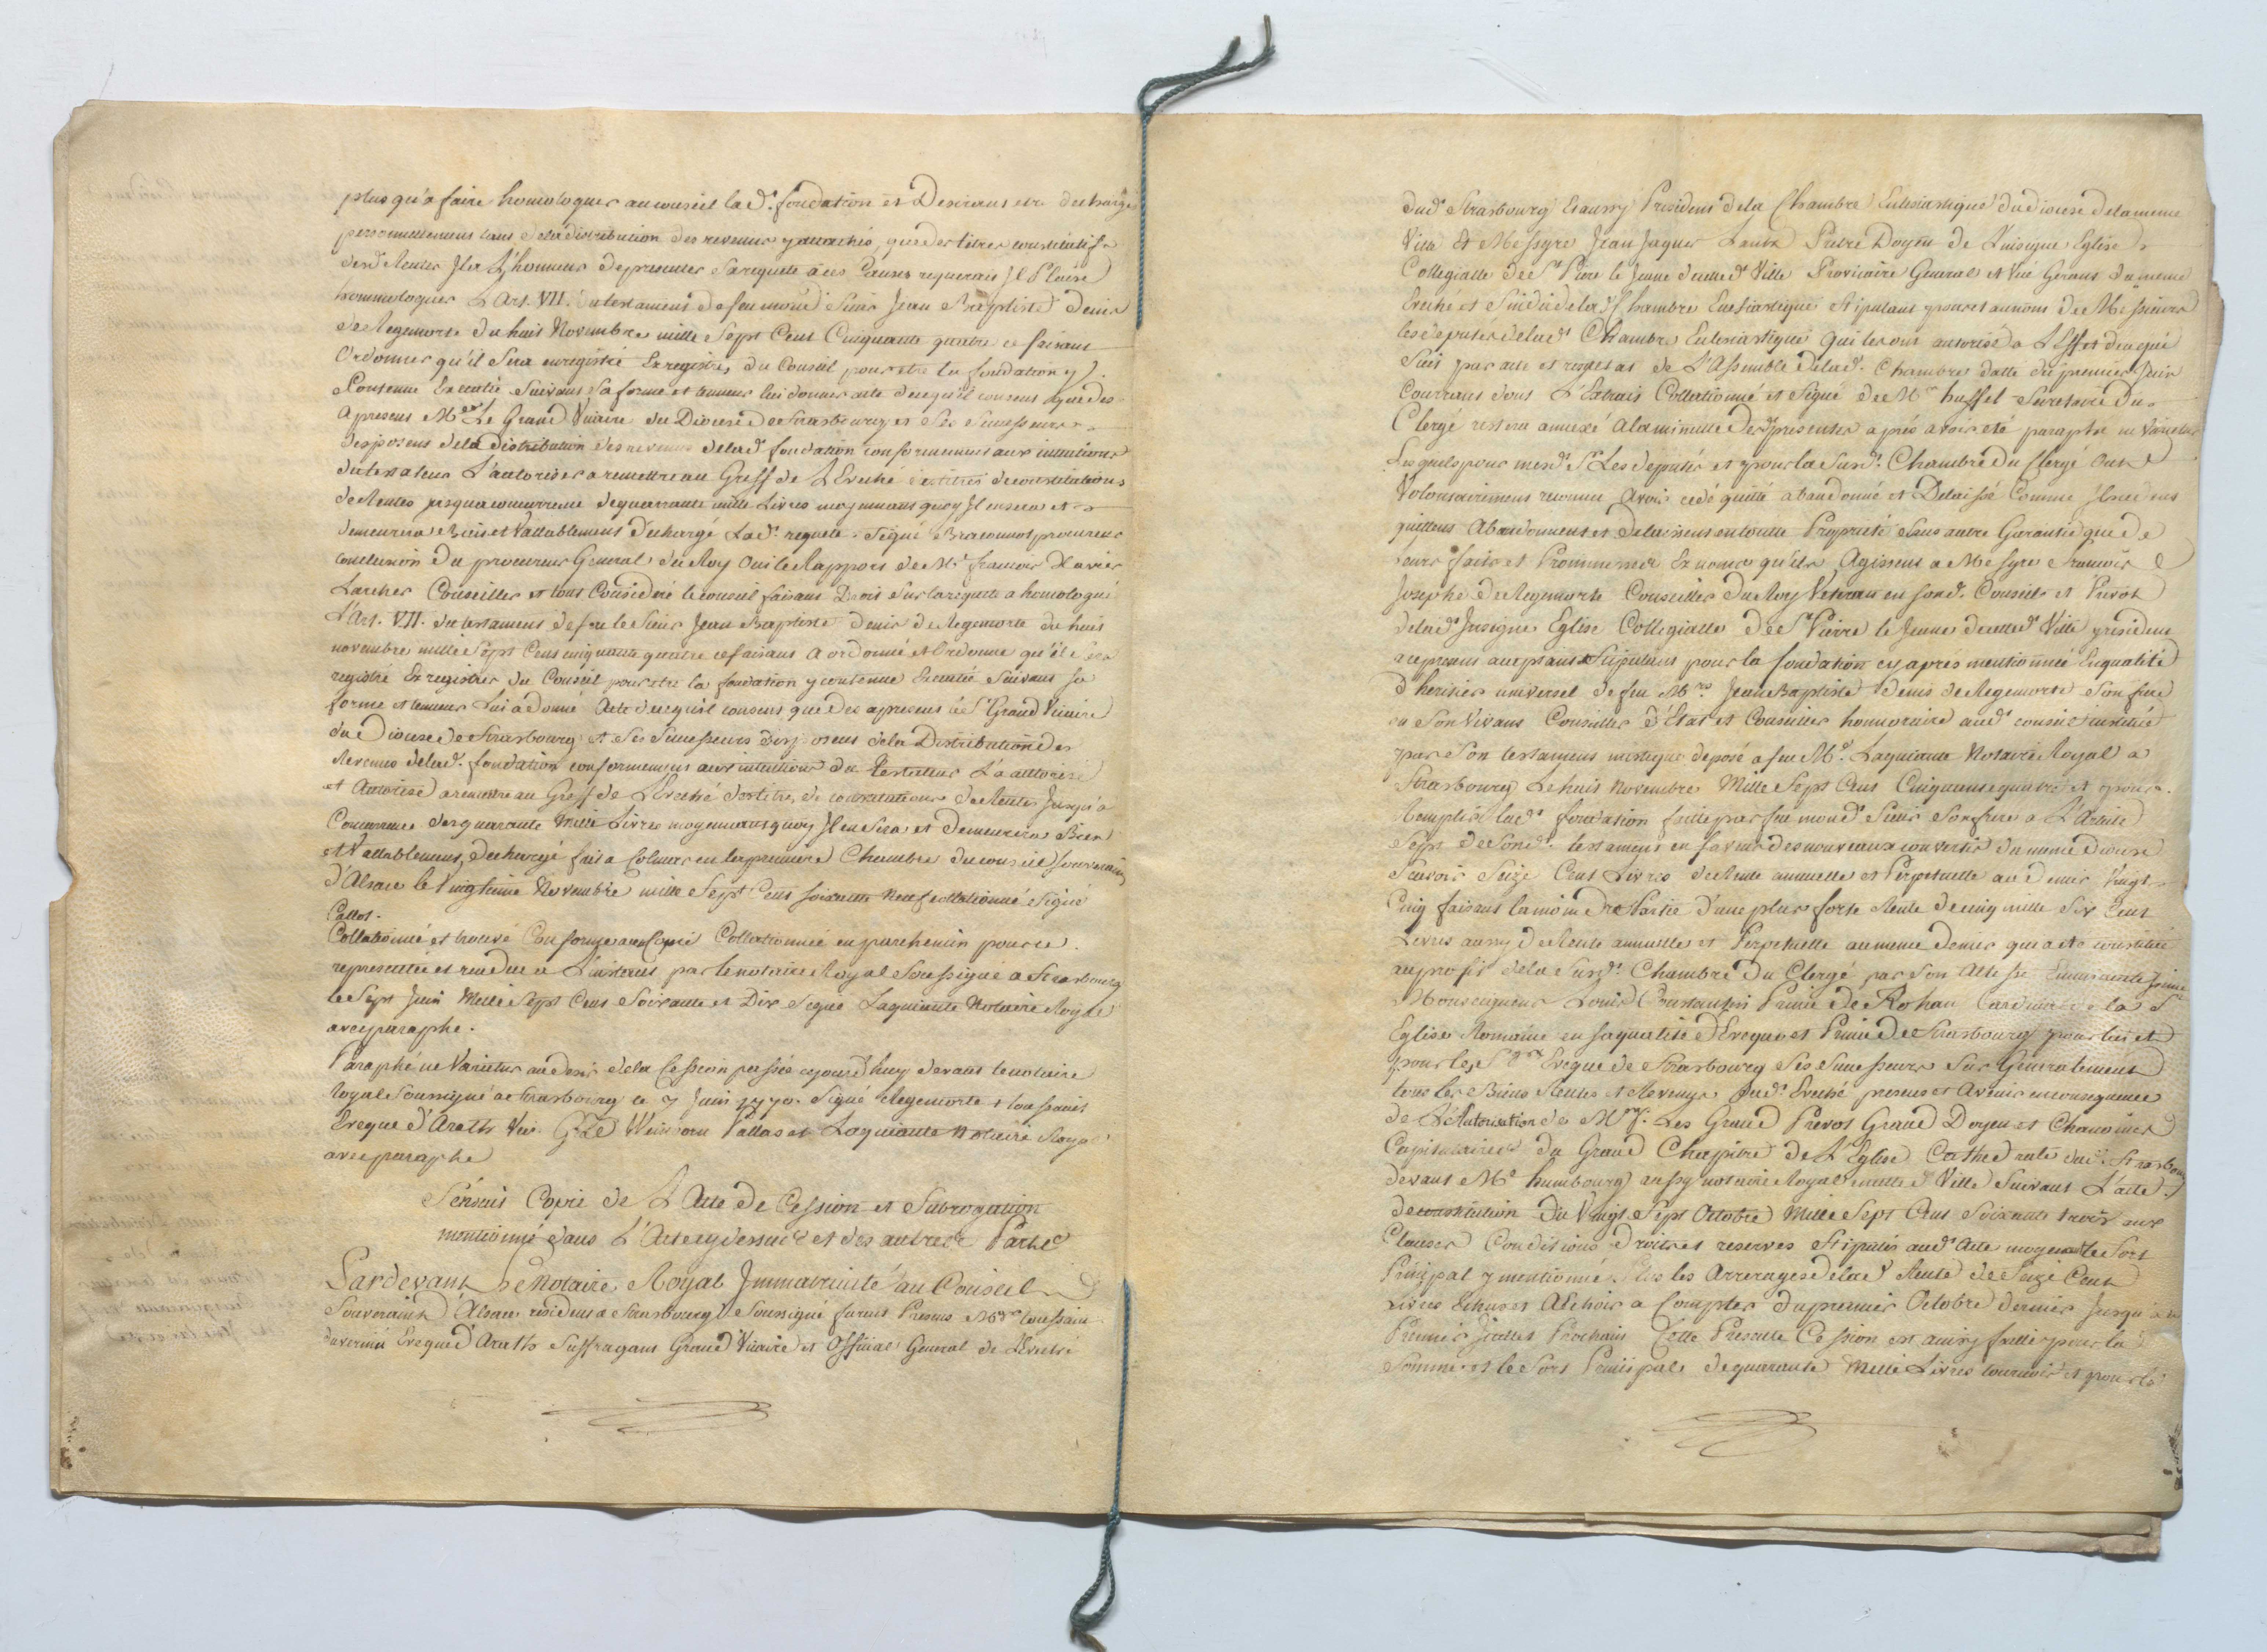 plus qu'a faire homologuer au conseil lad.e fondation et Desirant etre decharge
personnellement tant de la distribution des revenus y attachés, que des titres constitutifs
desd. Rentes Il a L'honneur de presenter sa requete à ces Causes requerait Il Plaise
hommologuer L'Art. VII. du testament de feu mond. Sieur Jean Baptiste Denis
de Regemorte du huit Novembre mille Sept Cent Cinquante quatre ce faisant
Ordonner qu'il Sera enregistré Es registres du Conseil pour etre la fondation y
Contenue Executée Suivant Sa forme et teneur lui donner acte de ce qu'il consent que des
Apresent Mr. Le Grand Vicaire du Diocese de Strasbourg et Ses Successeurs
disposent de la distribution des revenus de lad. fondation conformement aux intentions
du testateur L'autoriser a remettre au Greff de L'Eveché les titres de constitutions
de Rentes jusqua concurrence de quarante mille Livres moyennant quoy Il en sera et
demeurera Bien et Vallablement dechargé Lad. requete Signé Braconnot procureur
conclusion du procureur General du Roy Oui le Rapport de Mr. francois Xavier
Larcher Conseiller et tout Consideré le conseil faisant Droit Sur la requete a homologué
L'Art. VII. du testament de feu le Sieur Jean Baptiste Denis de Regemorte du huit
novembre mille Sept Cent cinquante quatre ce faisant a ordonné et Ordonne qu'il sera
registré Es registres du Conseil pour etre la fondation y contenue Executée Suivant sa
forme et teneur Lui a donné Acte de ce qu'il consent que des apresent le Sr. Grand Vicaire
du Diocese de Strasbourg et Ses Successeurs disposent de la Distribution des
Revenus de lad. fondation conformement aux intentions du testateur L'a authorisé
et Autorise a remettre au Greff de L'Eveché les titres de constitutions de Rentes Jusqu'a
Concurrence des quarante Mille Livres moyennant quoy Il en Sera et Demeurera Bien
et Vallablement dechargé fait a Colmar en la premiere Chambre du conseil souverain
d'Alsace le Vingtieme Novembre mille Sept Cent soixante neuf collationné Signé
Callot.
Collationné et trouvé Conforme a la Copie Collationnée en parchemin pour ce
representée et rendue a L'instant par le notaire Royal Soussigné a Strasbourg
le Sept Juin Mille Sept Cent Soixante et Dix Signé Laquiante Notaire Royal
avec paraphe.
Paraphé ne Varietur au desir de la Cession passée cejourd'huy devant le notaire
Royal Soussigné a Strasbourg ce 7 Juin 1770. Signé Regemorte + toussaint
Eveque d'Arath Vic. G.l Weinborn Pallas et Laquiante Notaire Royal
avec paraphe
S'ensuit Copie de L'Acte de Cession et Subrogation
mentionné dans L'Acte cy dessus et des autres Parts
Pardevant Le Notaire Royal Immatriculé au Conseil
Souverain d'Alsace resident a Strasbourg Soussigné furent Presens Mr. toussain
duvernin Eveque d'Arath Suffragant Grand Vicaire et Official General de L'eveché
dud. Strasbourg Et aussy President de la Chambre Eclesiastique du diocese de la meme
Ville Et Messyre Jean Jaques Lantz Pretre Doyen de L'insigne Eglise
Collegialle de St. Pierre le Jeune de cette d. Ville Provicaire General et Vice Gerant du meme
Eveché et Sindic de lad. Chambre Eclesiastique Stipulant pour et au nom de Messieurs
les deputes de lad. Chambre Eclesiastique Qui les ont autorisé a L'Effet de ce qui
Suit par acte et resultat de L'Assemblé de lad. Chambre datte du premier Juin
Courrant dont L'Extrait Collationné et Signé de Mr. hussel Secretaire du
Clergé restera annexé a la minutte des presentes après avoir eté paraphé ne Varietur
Lesquels pour mesd. Srs Les deputés et pour la Susd. Chambre du Clergé Ont
Volontairement reconnu Avoir cedé quitté abandonné et Delaissé Comme Ils cedent
quittent Abandonnent et delaissent en toutte Proprieté Sans autre Garantie que de
leurs faits et Promesses Es noms qu'ils Agissent a Messyre francois
Josephe de Regemorte Conseiller du Roy Veteran en sond. Conseil et Prevot
de lad. Insigne Eglise Collegialle de St. Pierre le Jeune de cette d. Ville president
a ce present acceptant et Stipulant pour la fondation cy après mentionnée En qualité
d'heritier universel de feu Mre Jean Baptiste Denis de Regemorte Son frere
en Son Vivant Conseiller d'Etat et Conseiller honnoraire aud. conseil institué
par Son testament mistique deposé a feu Me. Laquiante Notaire Royal a
Strasbourg Le huit Novembre Mille Sept Cent Cinquante quatre et pour
Remplir lad. fondation faitte par feu mond. Sieur Son frere a L'Article
Sept de Sond. testament en faveur des nouveaux convertis du meme diocese
Scavoir Seize Cent Livres de Rente annuelle et Perpetuelle au Denier Vingt
Cinq faisant la moindre Partie d'une plus forte Rente de cinq mille Six Cent
Livres aussy de Rente annuelle et Perpetuelle au meme denier qui a eté constituée
au profit de la Susd. Chambre du Clergé par Son Altesse Eminentissime
Monseigneur Louis Constantin Prince de Rohan Cardinal de la Ste
Eglise Romaine en sa qualité d'Eveque et Prince de Strasbourg pour lui et
pour les Sgrs Eveque de Strasbourg Ses Successeurs Sur Generalement
tous les Biens Rentes et Revenus dud. Eveché presens et Avenir en consequence
de L'Autorisation de Mrs. Les Grand Prevot Grand Doyen et Chanoines
Capitulaires du Grand Chapitre de L'Eglise Cathedrale dud. Strasbourg
devant Me. humbourg aussy notaire Royal en cette d. Ville Suivant L'acte
de constitution du Vingt Sept Octobre Mille Sept Cent Soixante trois aux
Clauses Conditions droits et reserves Stipulés aud. Acte moyennant le Sort
Principal y mentionné Plus les Arrerages de lad. Rente de Seize Cent
Livres Echus et A Echoir a Compter du premier Octobre dernier Jusqu'a
Premier Juillet Prochain Cette Presente Cession est ainsy faitte pour la
Somme et le Sort Principale de quarante Mille Livres tournois et pour le